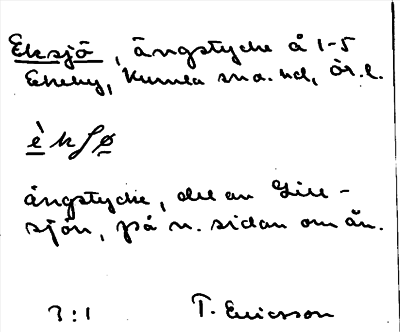 Eksjö, ängstycke å 1-5
Ekeby, Kumla sn o. hd, ör. l.
è k ʃ ø
ängstycke, del av Lill-
sjön, på n. sidan om ån.
3:1 T. Ericsson